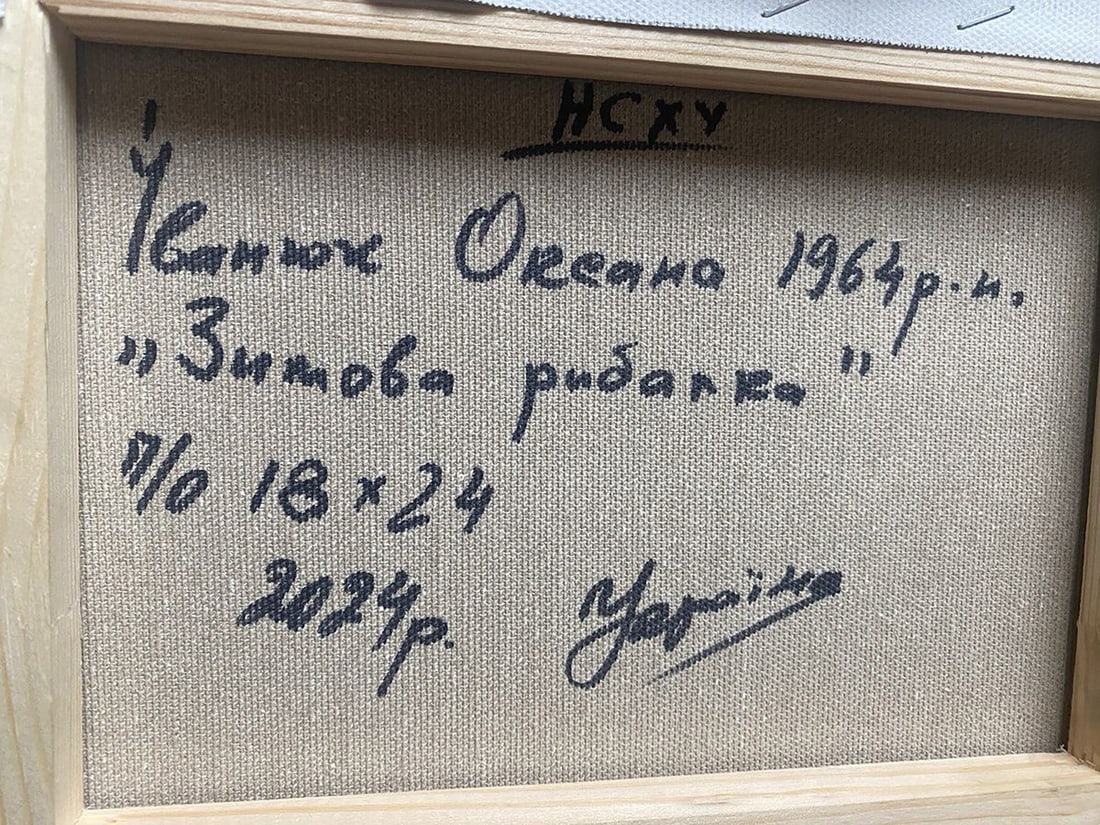 НСХУ
Іванюк Оксана 1964р.н.
„Зимова рибалка"
п/о 18×24
2024р. Україна